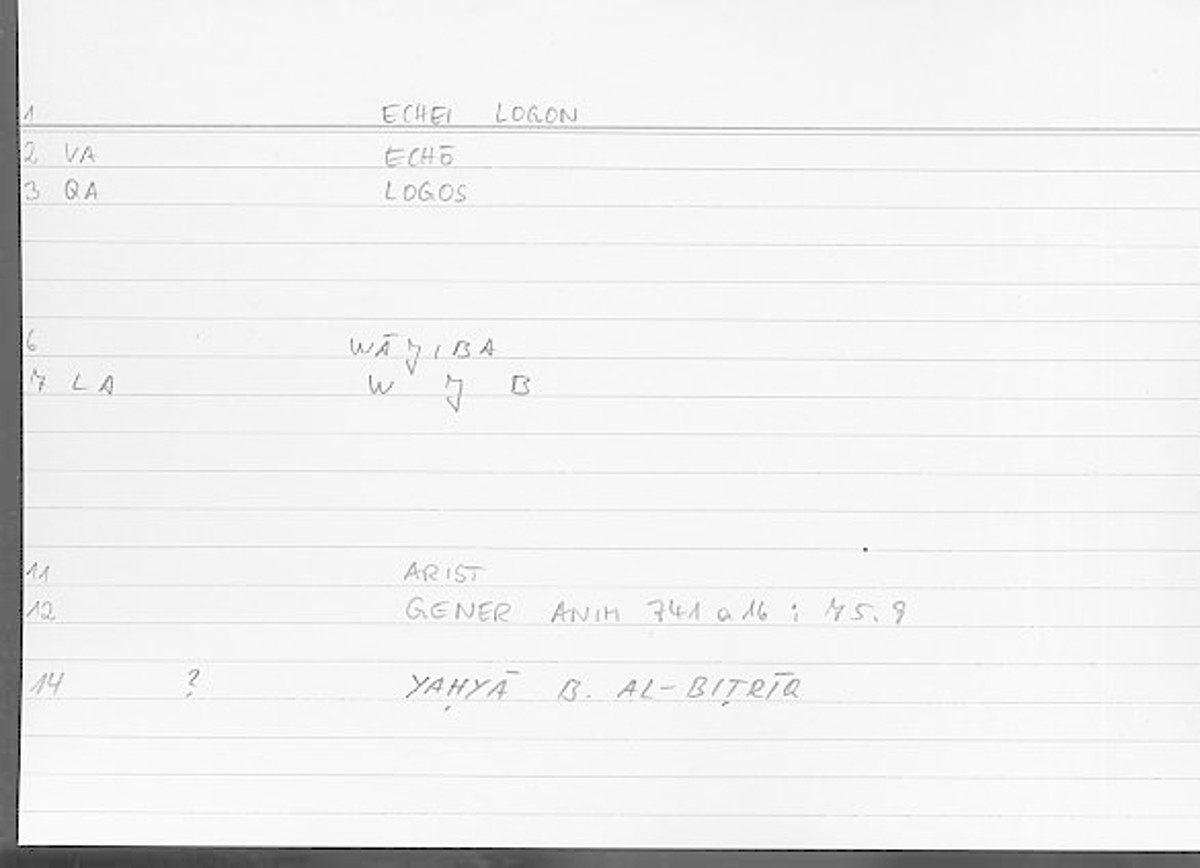 1 ECHEI LOGON
2 VA ECHŌ
3 QA LOGOS
6 WĀJIBA
7 LA W J B
11 ARIST
12 GENER ANIM 741 a 16 : 75.9
14 ? YAḤYĀ B. AL-BIṬRĪQ